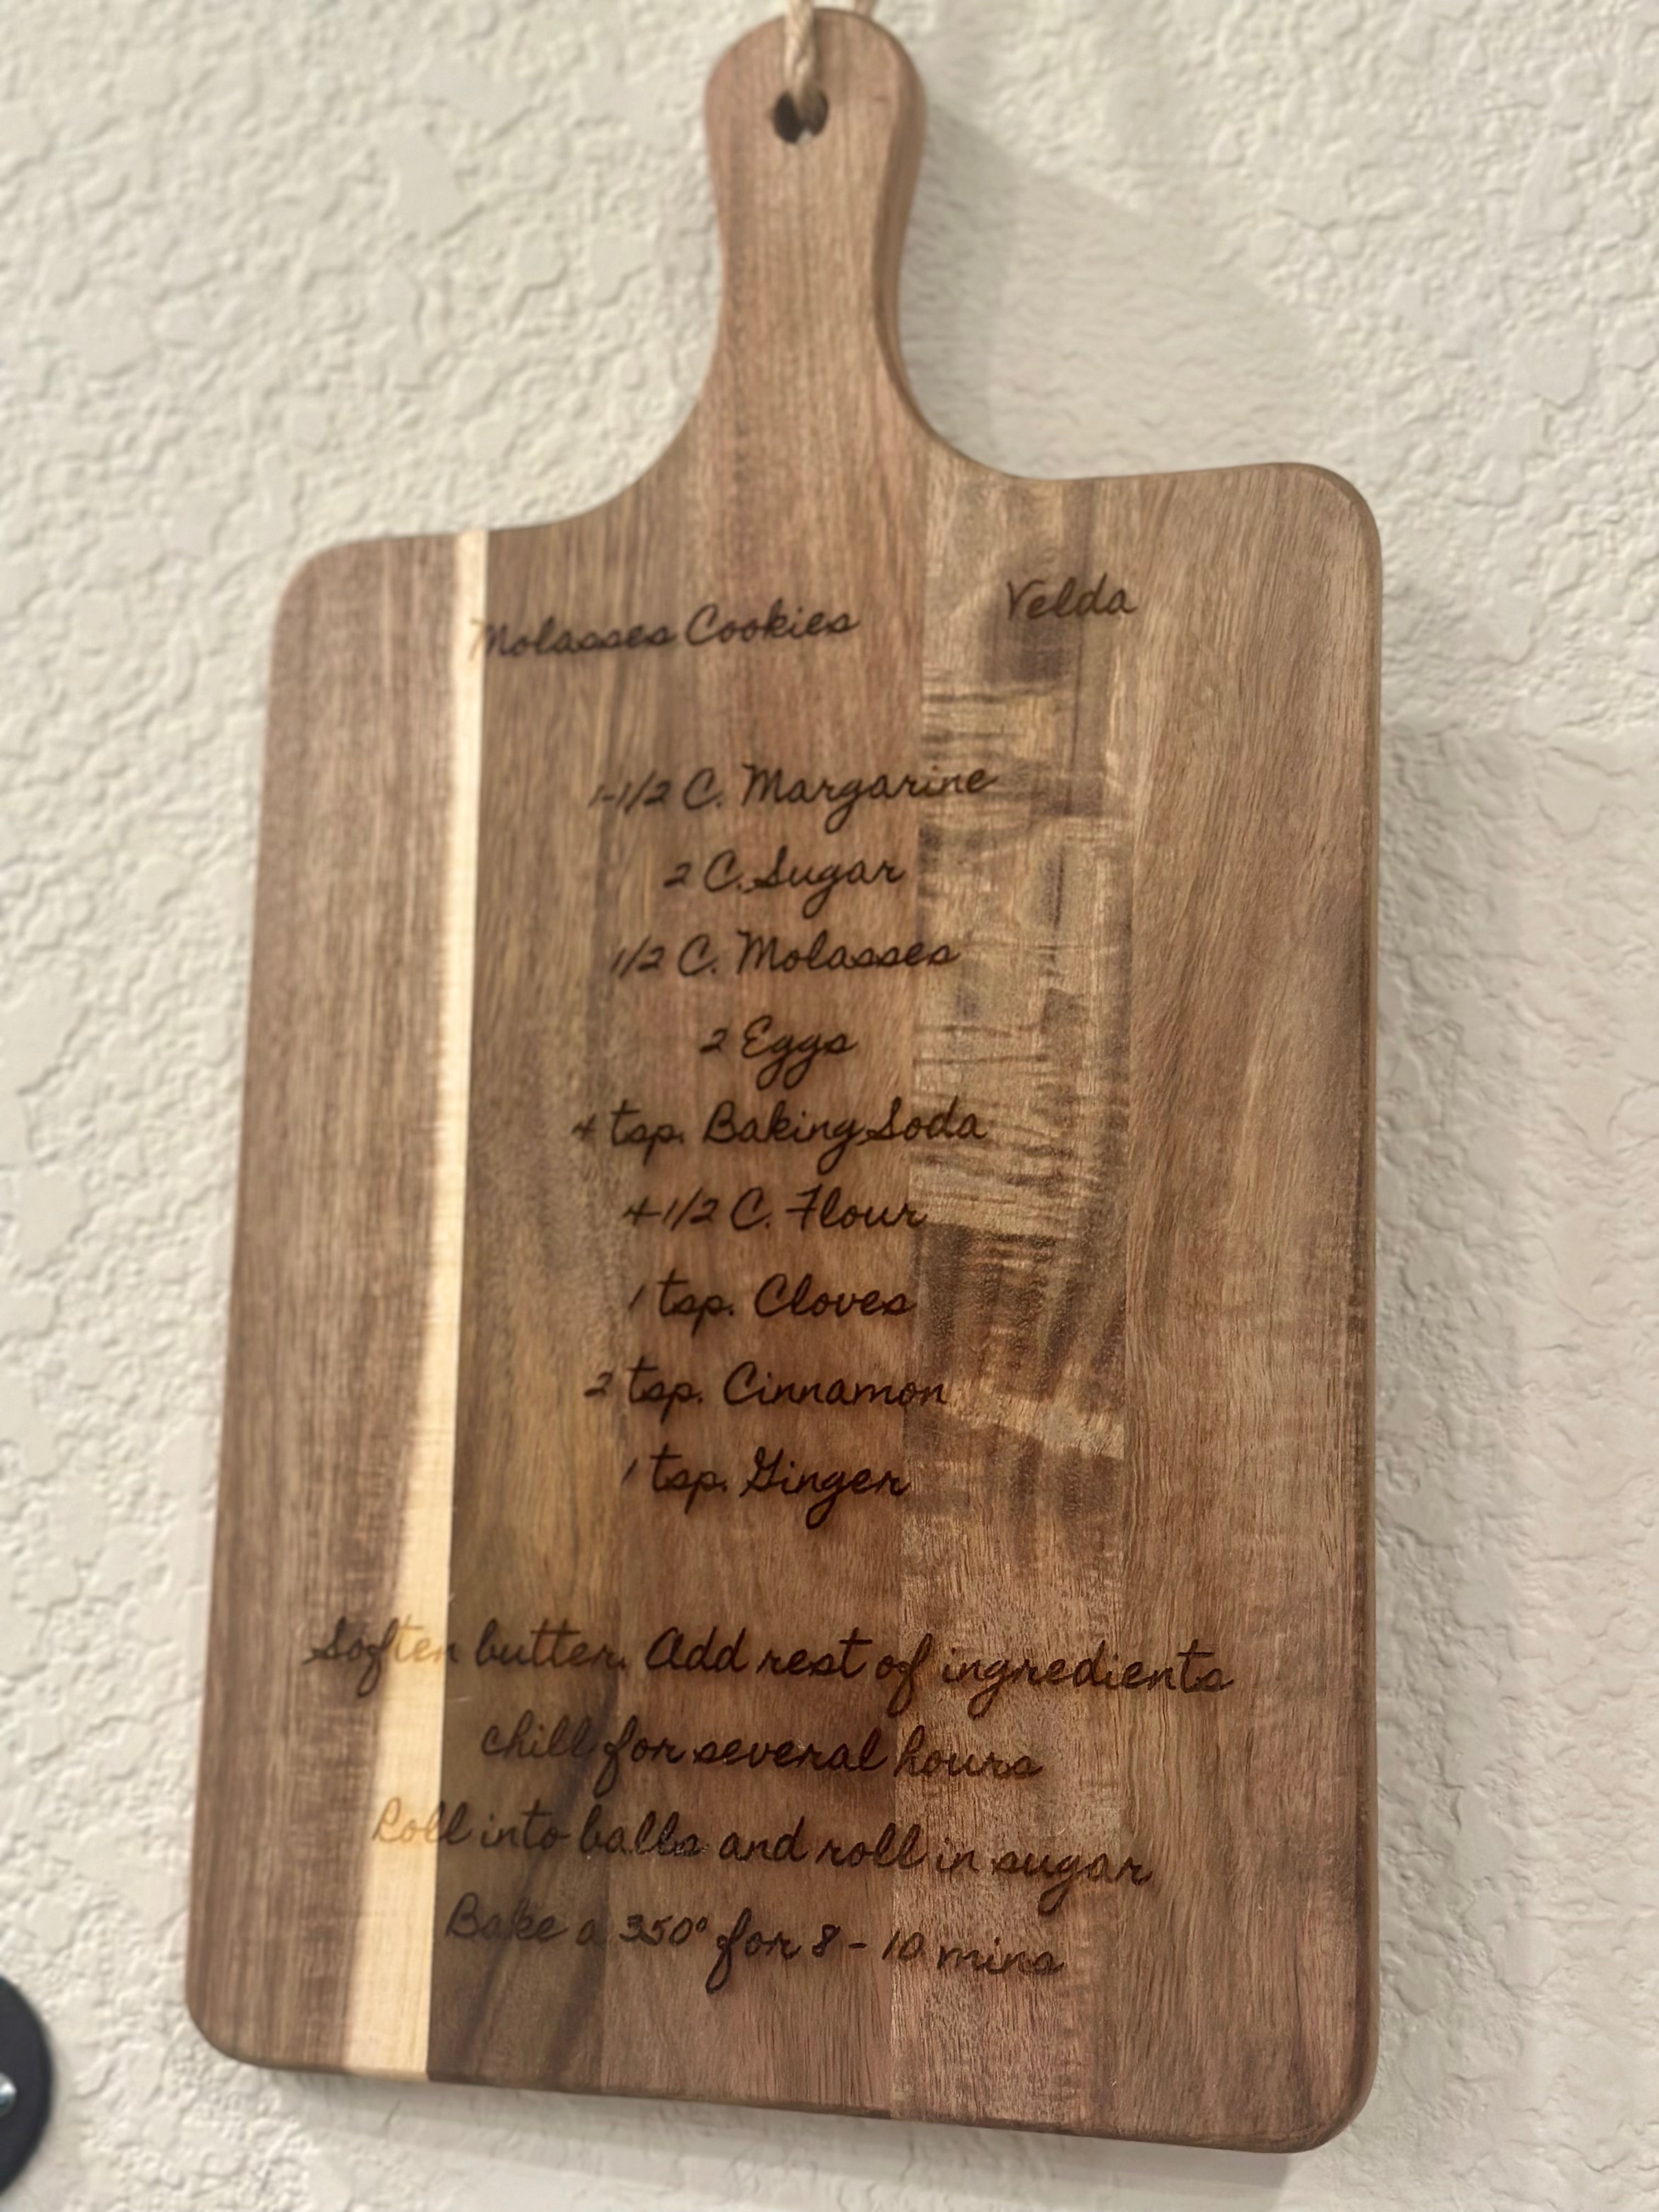 Molasses Cookies Velda
1-1/2 C. Margarine
2 C. Sugar
1/2 C. Molasses
2 Eggs
4 tsp. Baking Soda
4 1/2 C. Flour
1 tsp. Cloves
2 tsp. Cinnamon
1 tsp. Ginger
Soften butter. Add rest of ingredients
chill for several hours
Roll into balls and roll in sugar
Bake a 350° for 8 - 10 mins